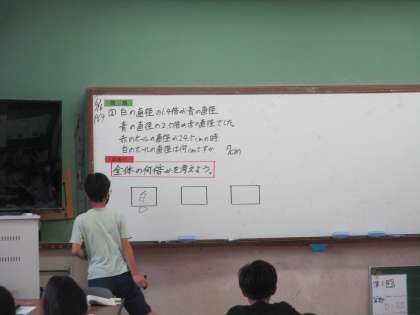 ② 白の直径の1.4倍が青の直径
青の直径の2.5倍が赤の直径でした
赤のボールの直径が24.5cmの時
白のボールの直径は何cmですか 7cm
全体の何倍かを考えよう。
白